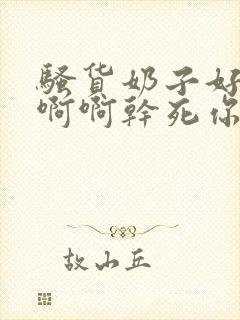 骚货奶子好
啊啊幹死你
故山丘